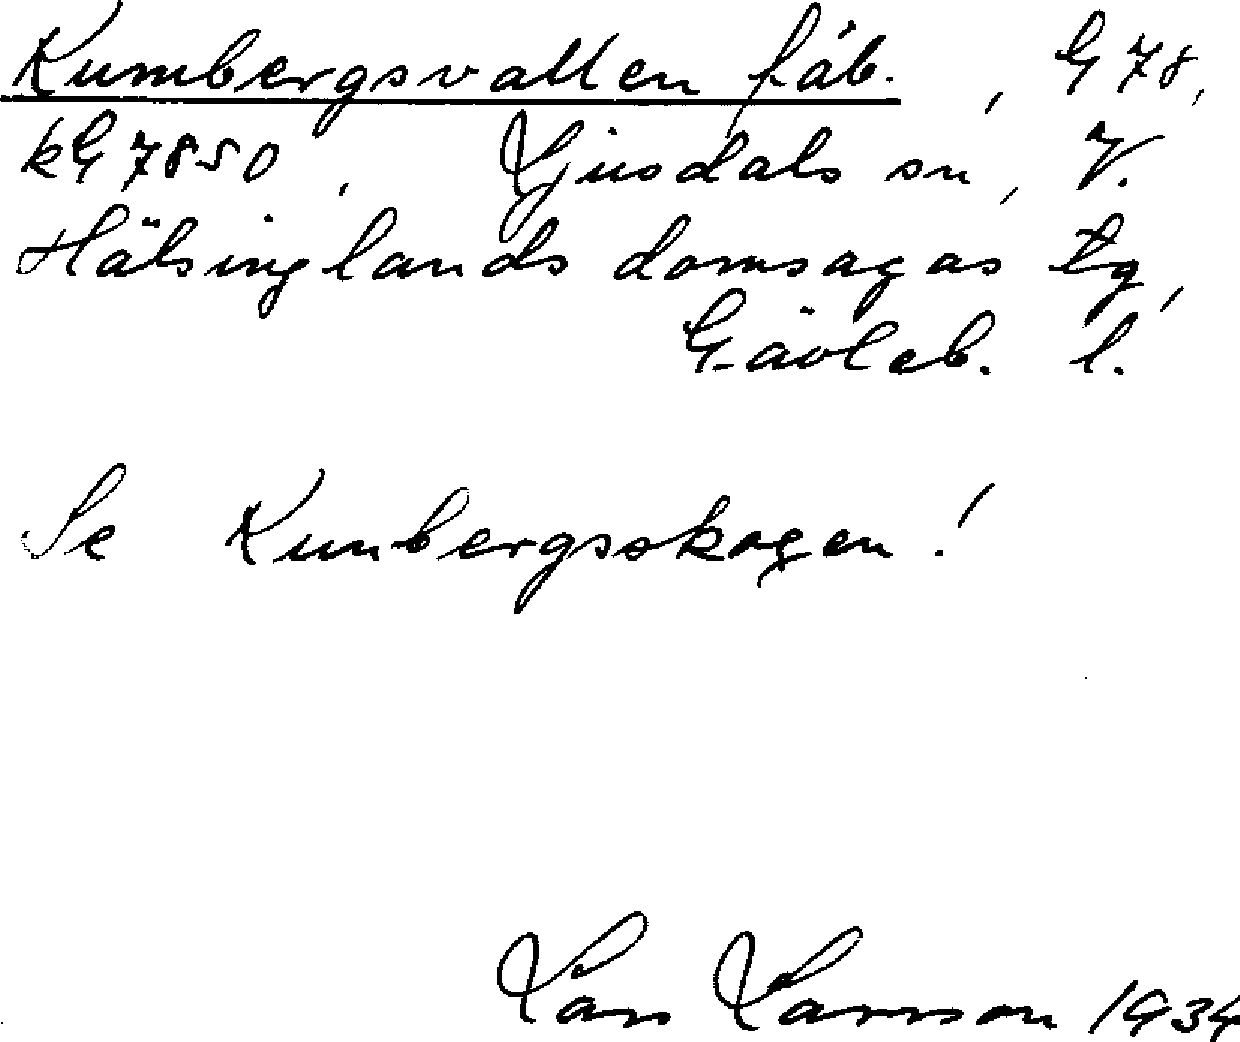 Kumbergsvallen fäb. , G 78,
kG 7850 , Ljusdals sn, V.
Hälsinglands domsagas tg,
Gävleb. l.
Se Kumbergsskogen!
Lars Larsson 1934